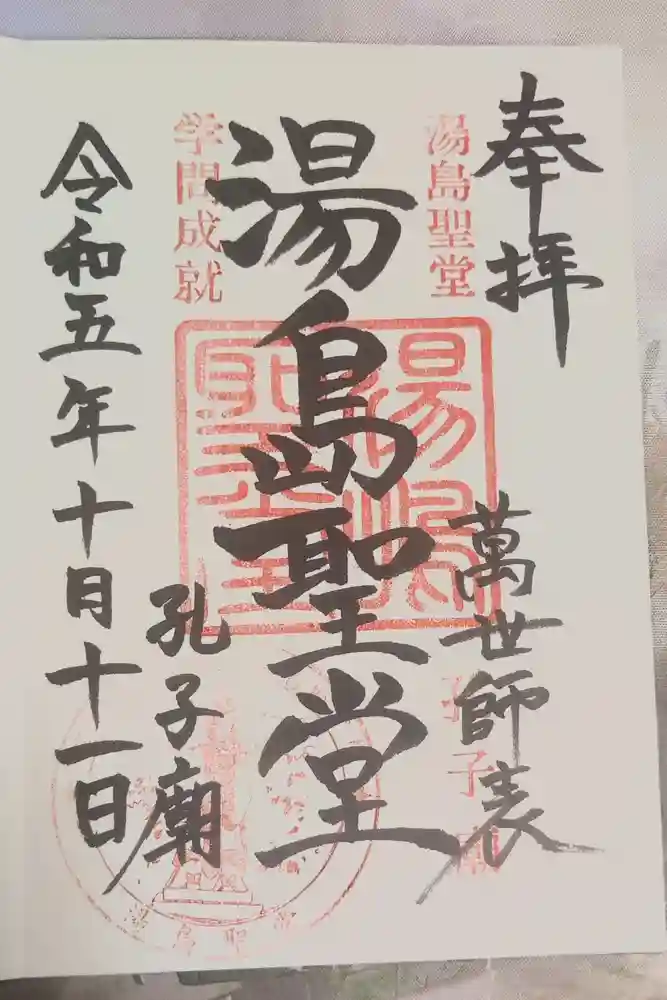 奉拝
湯島聖堂
萬世師表
孔子廟
湯島聖堂
湯島聖堂
学問成就
孔子廟
湯島聖堂
令和五年十月十一日